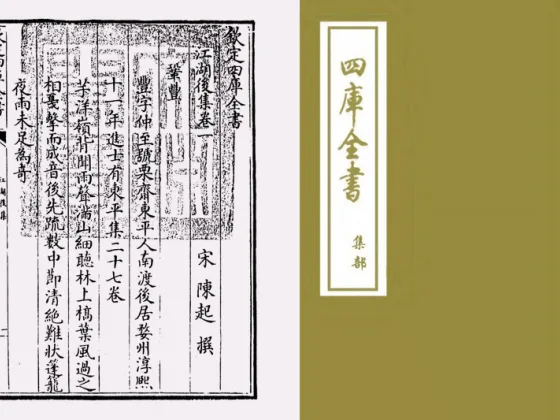 欽定四庫全書
江湖後集卷一　宋 陳起 撰
鞏豐
豐字仲至號栗齋東平人南渡後居婺州淳熙
十一年進士有東平集二十七卷
芋洋嶺背聞雨聲滿山細聽林上槁葉風過之
相戛擊而成音後先疏數中節清絕難狀篷籠
夜雨未足為奇
四庫全書
集部